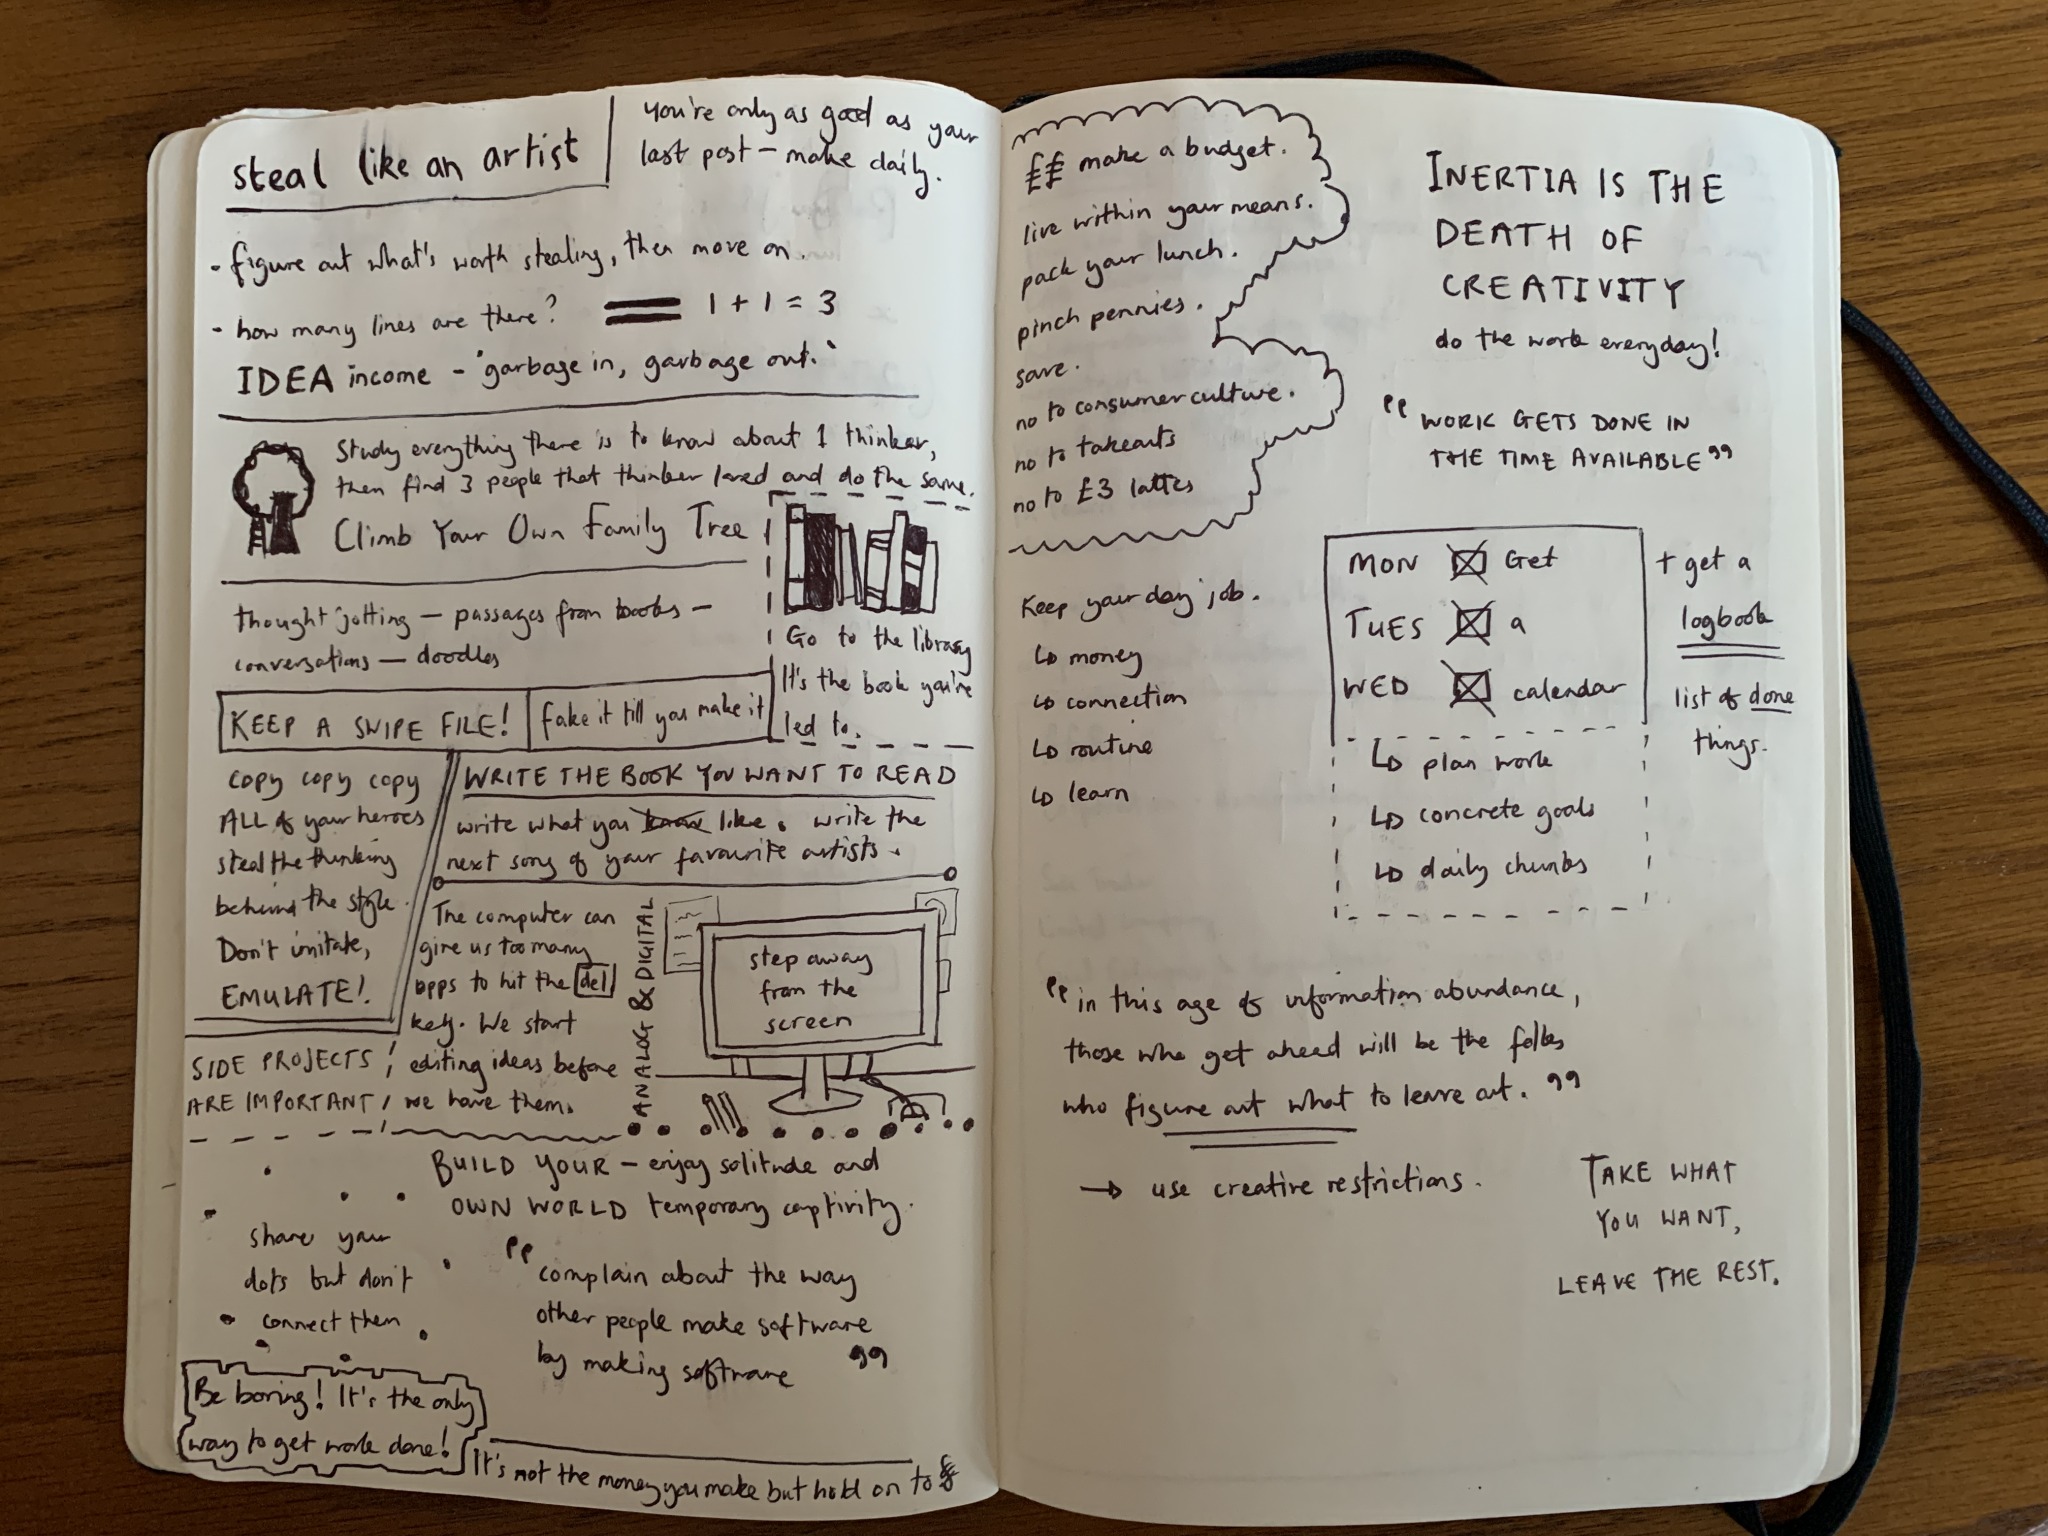 steal like an artist
you're only as good as your
last post – make daily.
- figure out what's worth stealing, then move on.
- how many lines are there? 1 + 1 = 3
IDEA income - "garbage in, garbage out."
Study everything there is to know about 1 thinker,
then find 3 people that thinker loved and do the same.
Climb Your Own Family Tree
thought jotting – passages from books –
conversations – doodles
Go to the library
It's the book you're
led to.
KEEP A SWIPE FILE!
fake it till you make it
copy copy copy
ALL of your heroes
steal the thinking
behind the style.
Don't imitate,
EMULATE!
WRITE THE BOOK YOU WANT TO READ
write what you know like. write the
next song of your favourite artists.
The computer can
give us too many
opps to hit the del
key. We start
editing ideas before
we have them.
ANALOG & DIGITAL
step away
from the
screen
SIDE PROJECTS
ARE IMPORTANT
BUILD YOUR – enjoy solitude and
OWN WORLD temporary captivity.
share your
dots but don't
connect them
"complain about the way
other people make software
by making software"
Be boring! It's the only
way to get work done!
It's not the money you make but hold on to £
££ make a budget.
live within your means.
pack your lunch.
pinch pennies.
save.
no to consumer culture.
no to takeouts
no to £3 lattes
INERTIA IS THE
DEATH OF
CREATIVITY
do the work everyday!
"WORK GETS DONE IN
THE TIME AVAILABLE"
Keep your day job.
↳ money
↳ connection
↳ routine
↳ learn
MON ☒ Get
TUES ☒ a
WED ☒ calendar
↳ plan work
↳ concrete goals
↳ daily chunks
+ get a
logbook
list of done
things.
"in this age of information abundance,
those who get ahead will be the folks
who figure out what to leave out."
→ use creative restrictions.
TAKE WHAT
YOU WANT,
LEAVE THE REST.